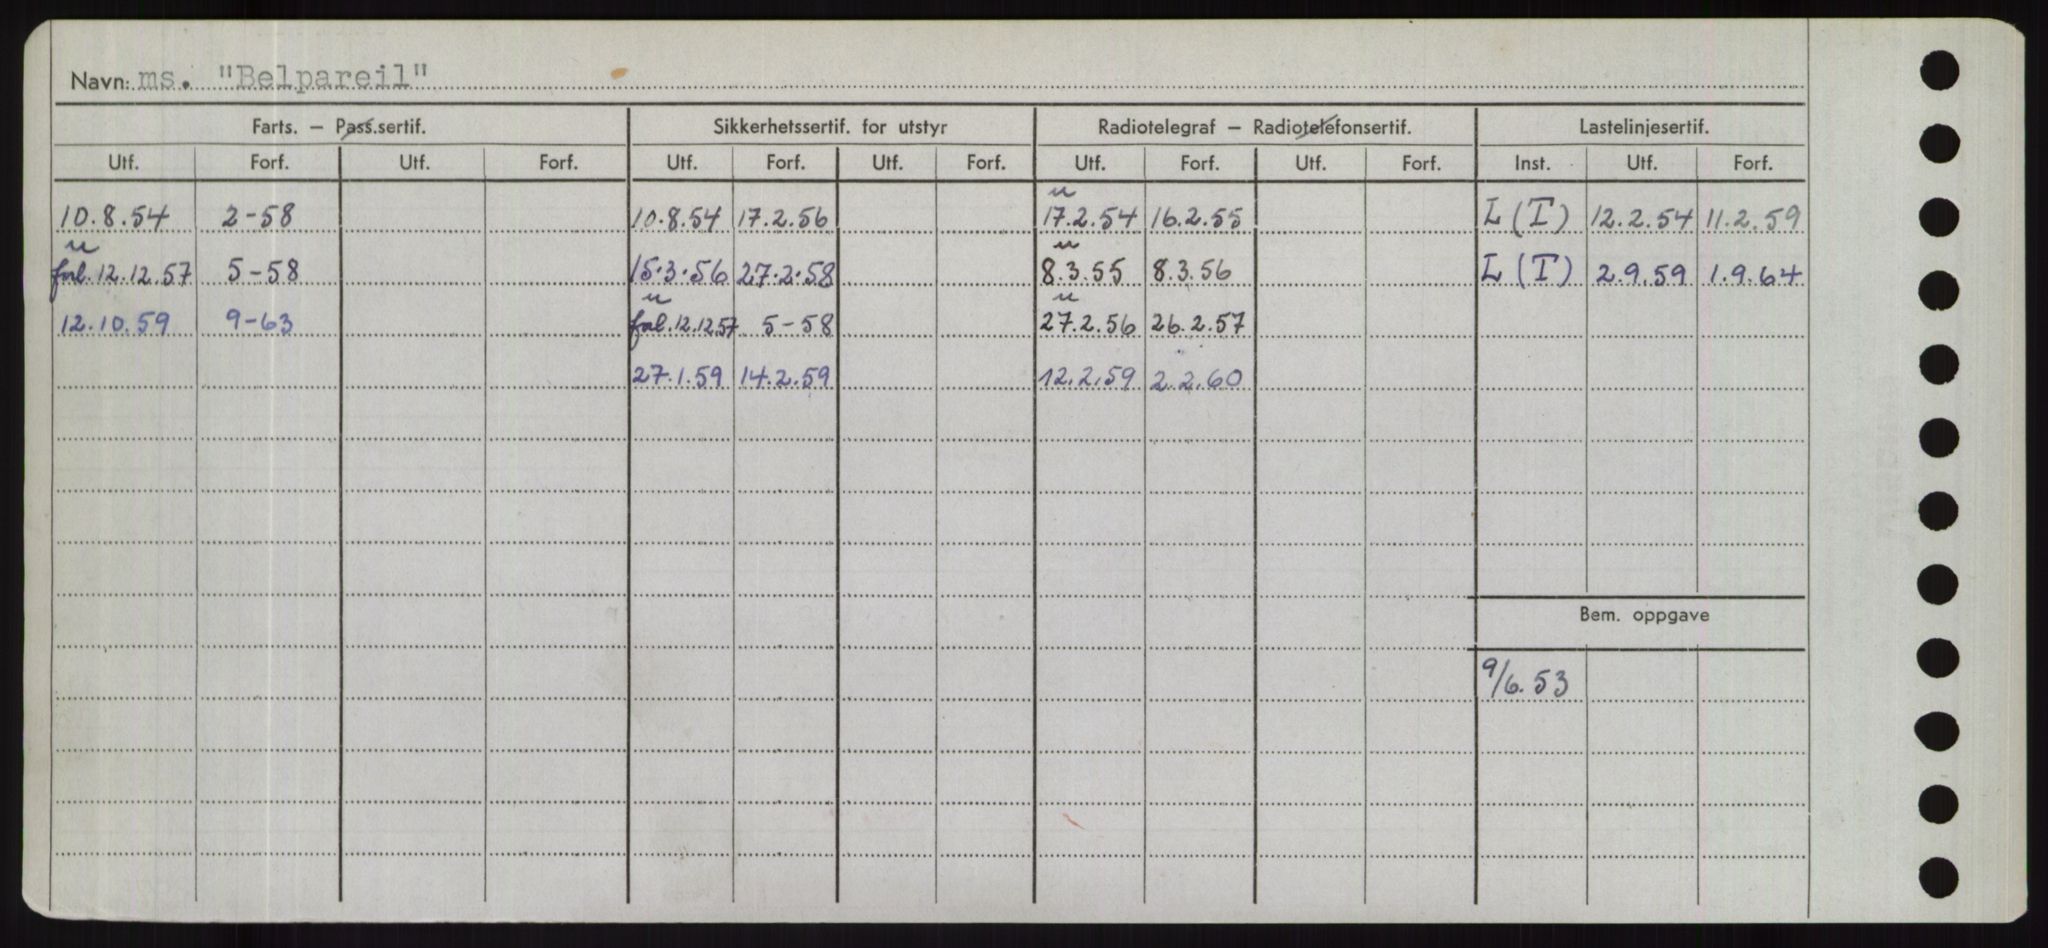 Navn: ms. "Belpareil"
Farts. — Pass.sertif. Sikkerhetssertif. for utstyr Radiotelegraf — Radiotelefonsertif. Lastelinjesertif.
Utf. Forf. Utf. Forf. Utf. Forf. Utf. Forf. Utf. Forf. Utf. Forf. Inst. Utf. Forf.
u
10.8.54 2-58 10.8.54 17.2.56 17.2.54 16.2.55 L (I) 12.2.54 11.2.59
u u
forl. 12.12.57 5-58 15.3.56 27.2.58 8.3.55 8.3.56 L (I) 2.9.59 1.9.64
u u
12.10.59 9-63 forl. 12.12.57 5-58 27.2.56 26.2.57
27.1.59 14.2.59 12.2.59 2.2.60
Bem. oppgave
9/6.53